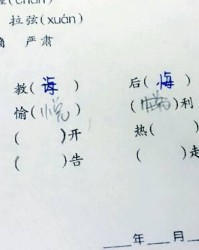 拉弦(xuán)
严肃
教(诲) 后(悔)
愉(悦) (锐)利
( )开 热( )
( )告 ( )走
年 月